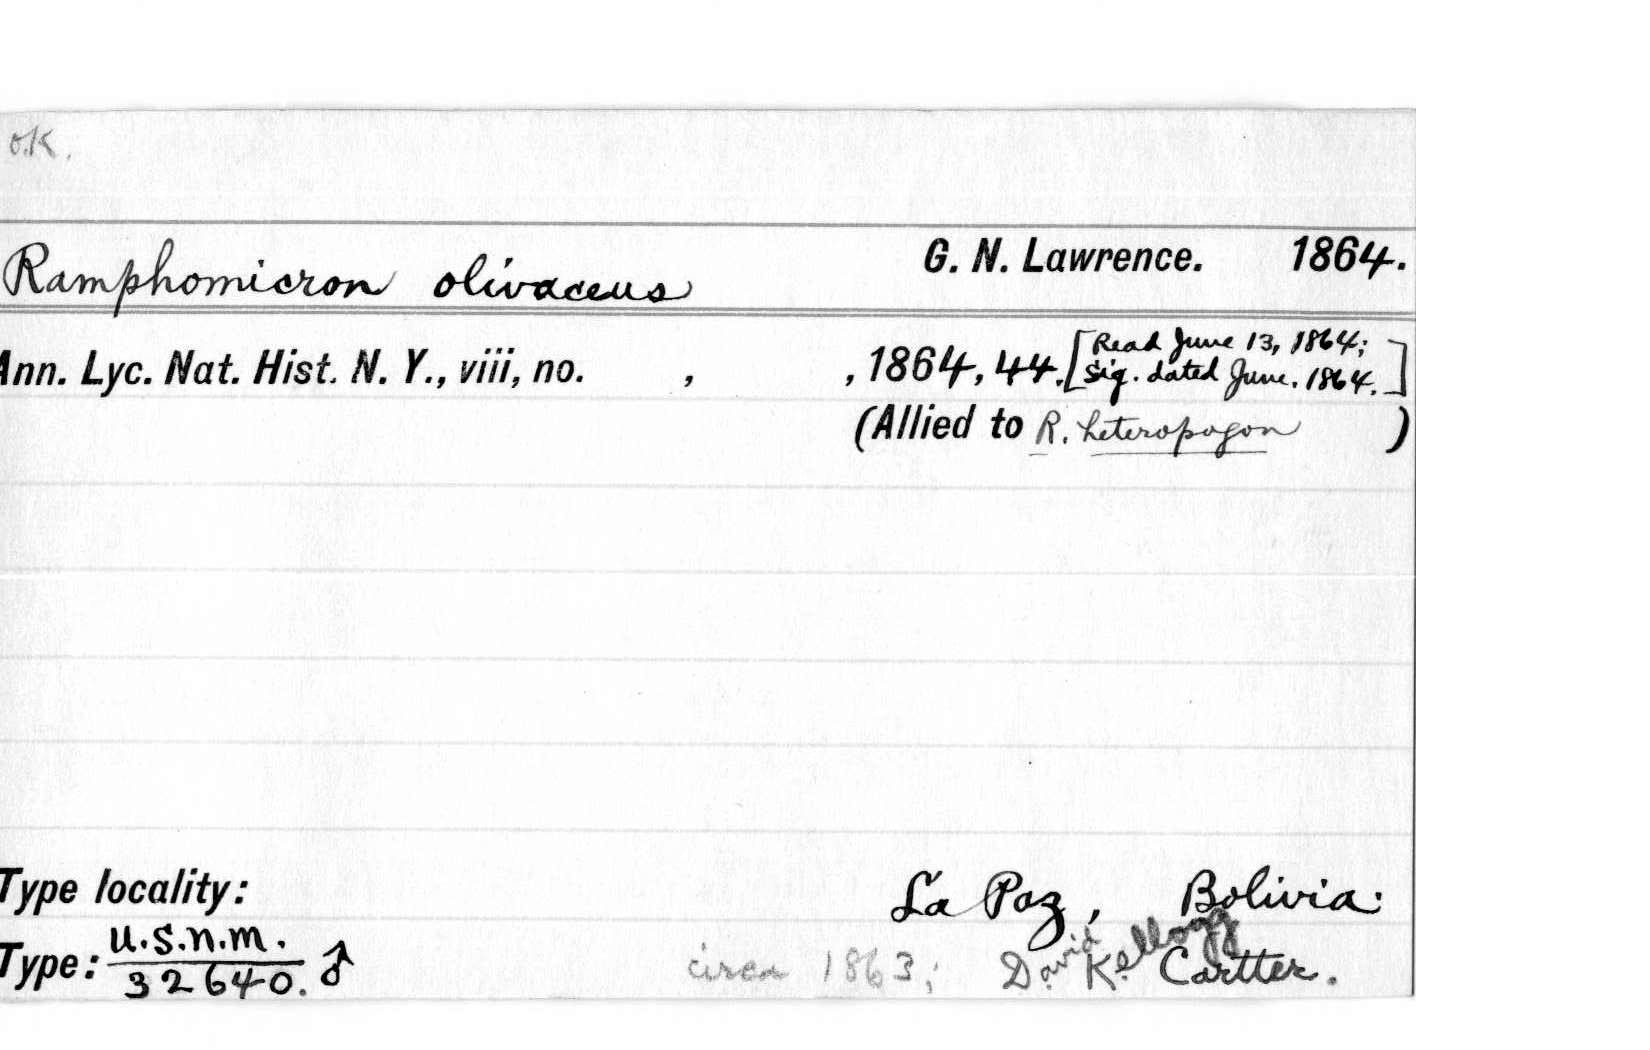 O.K.
Ramphomicron olivaceus G. N. Lawrence. 1864.
Ann. Lyc. Nat. Hist. N. Y., viii, no. , , 1864, 44. [Read June 13, 1864;
Sig. dated June. 1864.]
(Allied to R. heteropogon )
Type locality: La Paz, Bolivia:
Type: U.S.N.M. 32640. ♂ circa 1863; David Kellogg Cartter.